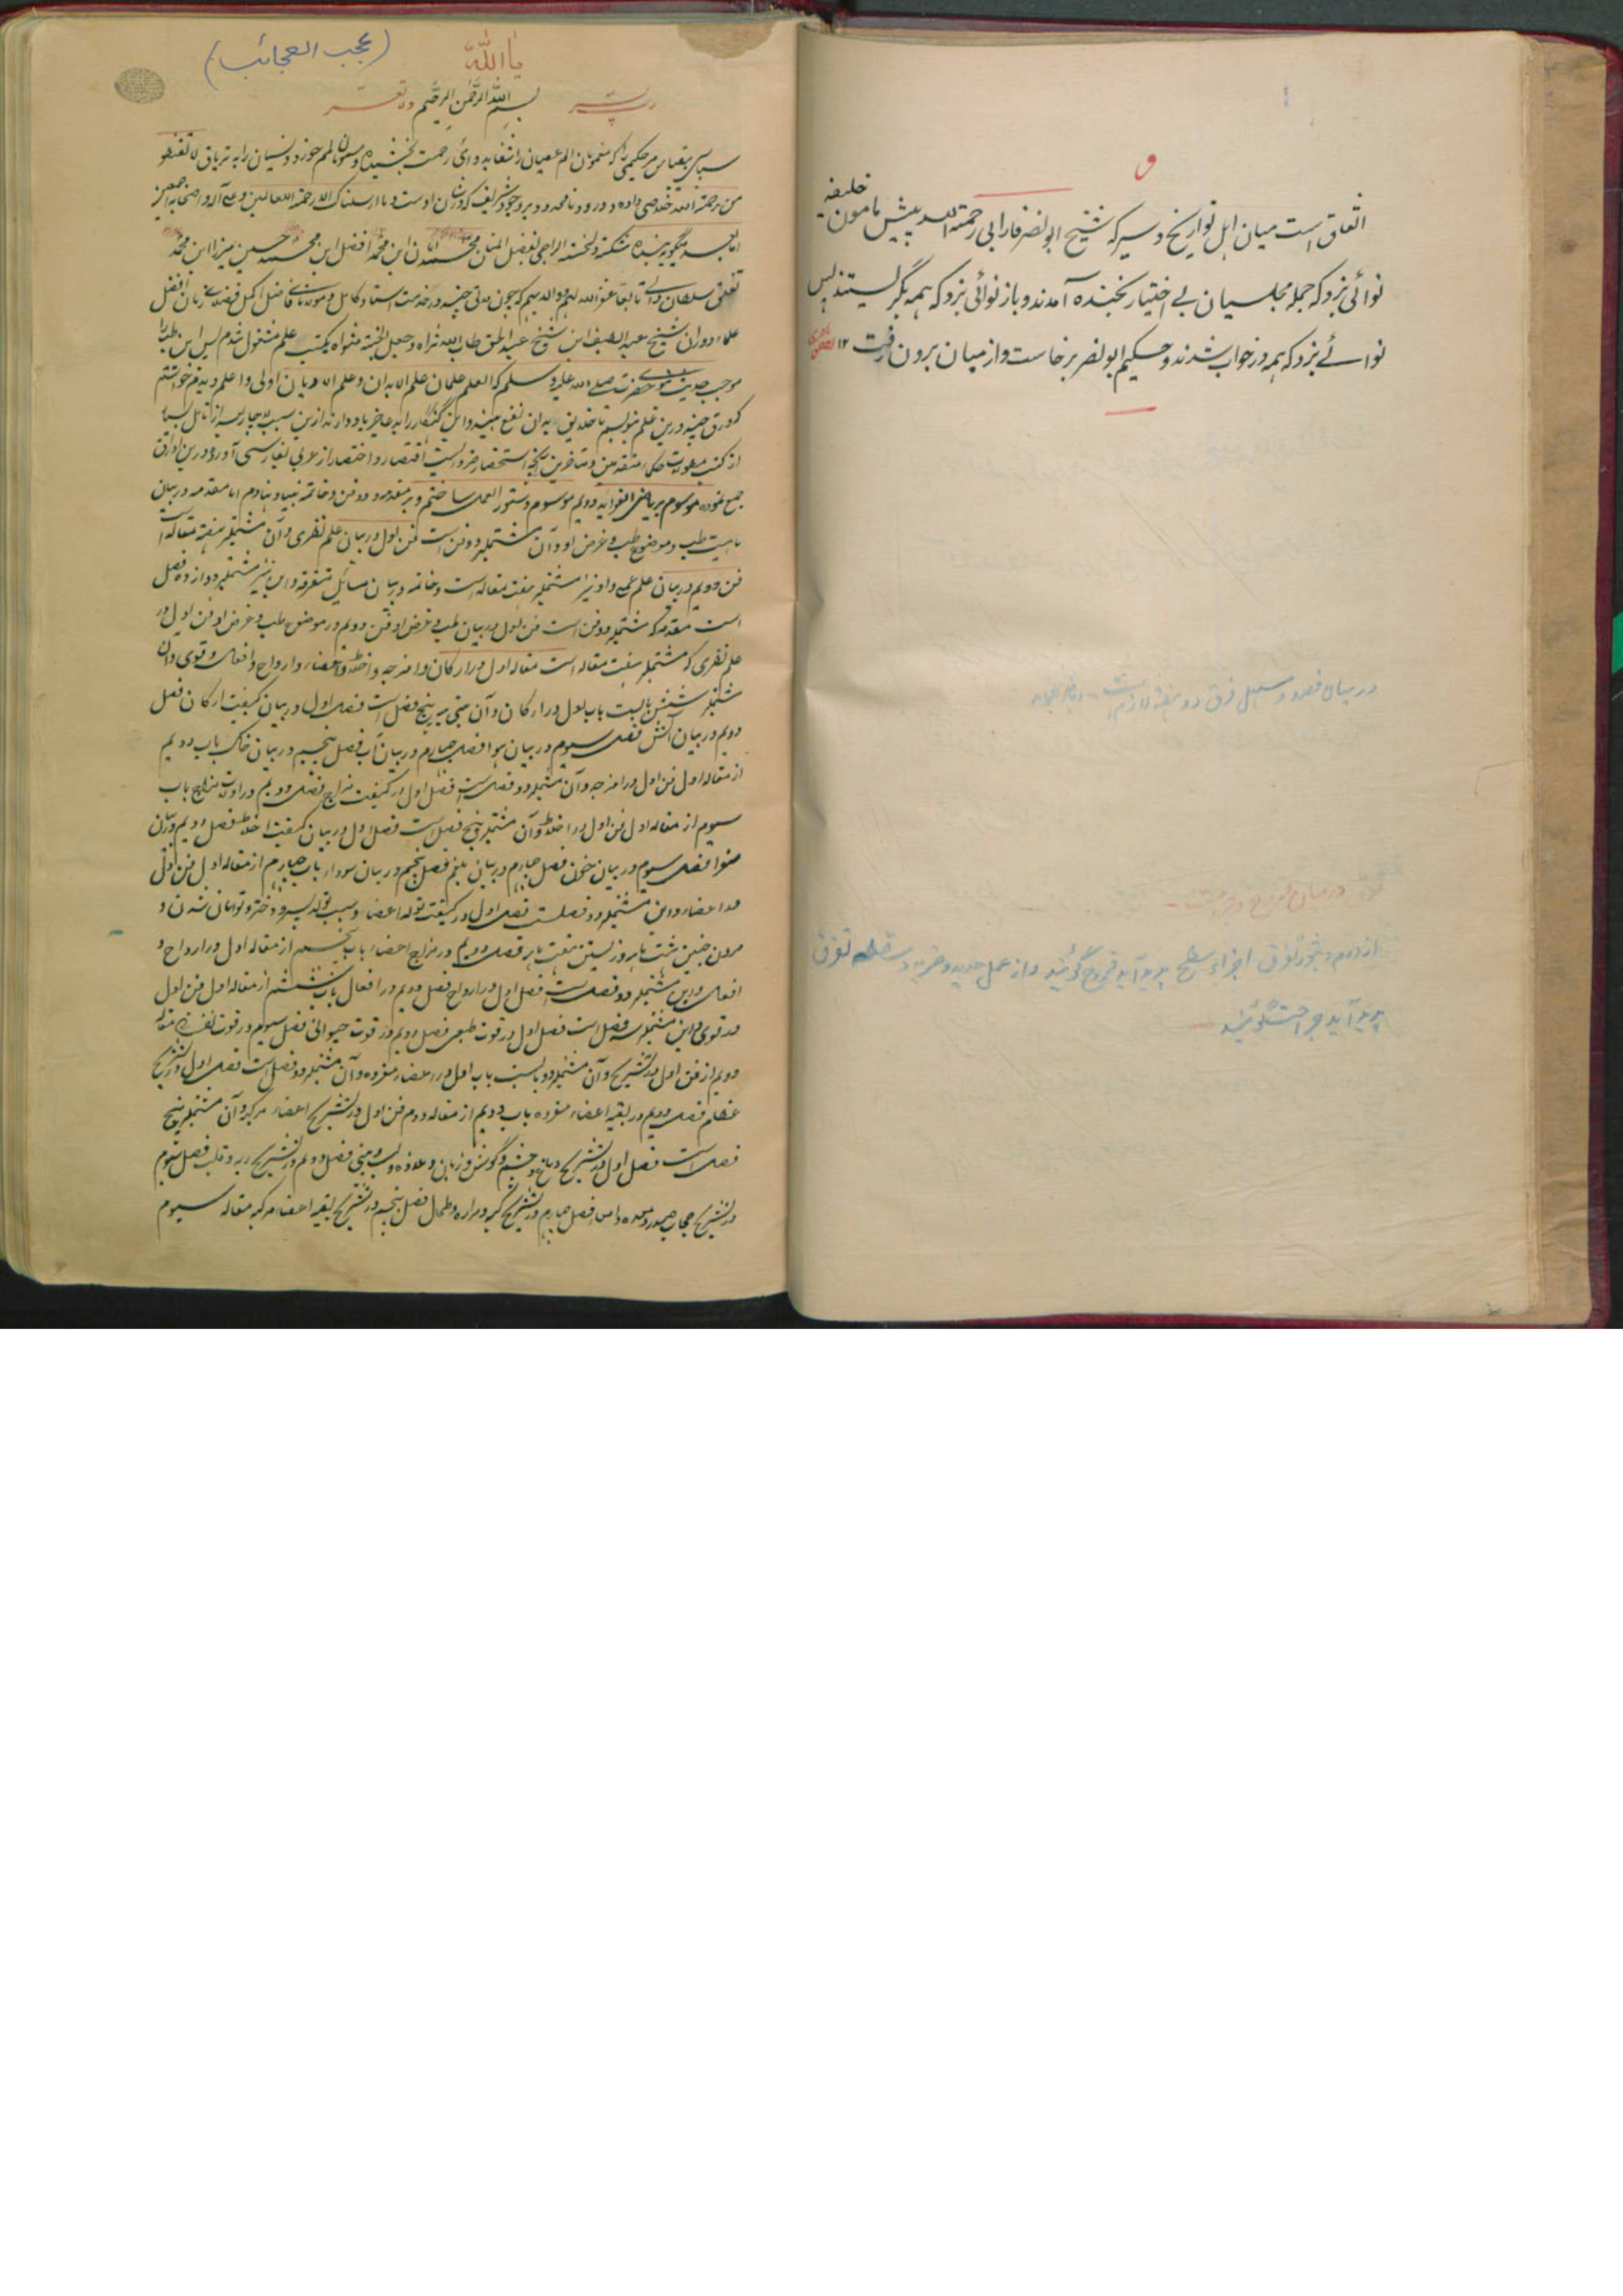 ف
اتفاق است میان اہل تواریخ و سیر کہ شیخ ابونصر فارابی رحمۃ اللہ پیش مامون خلیفہ
نوائی بزد کہ جملہ مجلسیان بے اختیار بخندہ آمدند و باز نوائی بزد کہ ہمہ بگریستند پس
نوائے بزد کہ ہمہ در خواب شدند و حکیم ابونصر برخاست و از میان برون رفت ۱۲
در بیان فصد و اسہل فرق دو
فرق درمیان قروح و جراحت
تفرق اجزای سطح پدید آید قروح گویند و از عمل حدید و ضربہ و سقطہ تفرق
پدید آید جراحت گویند
(عجب العجائب)
یا اللہ
رب یسر بسم اللہ الرحمن الرحیم ولا تعسر
سپاس بیقیاس مر حکیمی را کہ الم عصیان را رحمت بخشیده را بہ تریاق لا تقنطو
من رحمۃ اللہ خلاصی داده و درود نامحدود بر وجود شریف کہ در شان اوست وما ارسلناک الا رحمۃ للعالمین و علی آلہ و اصحابہ اجمعین
اما بعد میگوید بنده شکستہ الراجی بفضل المنان محمد ابن محمد افضل ابن محمد حسین میرزا ابن محمد
سلطان عفر اللہ لہم کہ چون مدتی چند در خدمت استاد کامل فاضل اکمل فضلای زمان افضل
علماء دوران شیخ عبد اللطیف ابن شیخ عبد الحق طاب اللہ ثراه و جعل الجنۃ مثواه بکسب علم مشغول شدم پس این
موجب حدیث حضرت صلی اللہ علیہ وسلم کہ العلم علمان علم الابدان و علم الادیان اولی
کہ ورق چند درین علم بنویسم تا خلایق بدان نفع
از کتب حکماء متقدمین و متاخرین اختصار از عربی بفارسی آورده درین اوراق
جمع نموده موسوم بریاض الفوائد دویم موسوم دستور العمل ساختم و بر مقدمہ و دو فن و خاتمہ بنیاد نهادم اما مقدمہ در بیان
ماہیت طب و موضوع طب و غرض او و آن مشتملبر دو فن است فن اول در بیان علم نظری و آن مشتملبر ہفت مقالہ است
فن دویم در بیان علم عملی و او نیز مشتملبر ہفت مقالہ است و خاتمہ در بیان مسائل متفرقہ و این نیز مشتملبر دوازده فصل
است مقدمہ کہ مشتملبر دو فن است فن اول در بیان طب و غرض او فن دویم در موضوع طب و غرض او فن اول در
علم نظری کہ مشتملبر ہفت مقالہ است مقالہ اول در ارکان و امزجہ و اخلاط و اعضاء و ارواح و افعال و قوی و آن
مشتملبر شش بابست باب اول در ارکان و آن مبنی بر پنج فصل است فصل اول در بیان کیفیت ارکان فصل
دویم در بیان آتش فصل سیوم در بیان ہوا فصل چہارم در بیان آب فصل پنجم در بیان خاک باب دویم
از مقالہ اول فن اول در امزجہ و آن مشتملبر دو فصل است فصل اول در کیفیت مزاج فصل دویم در مزاج باب
سیوم از مقالہ اول فن اول در اخلاط و آن مشتملبر پنج فصل است فصل اول در بیان کیفیت اخلاط فصل دویم در بیان
صفرا فصل سیوم در بیان خون فصل چہارم در بیان بلغم فصل پنجم در بیان سودا باب چہارم از مقالہ اول فن اول
در اعضاء و این مشتملبر دو فصلست فصل اول در کیفیت تولد اعضاء و سبب تولد پسر و دختر و توامان شدن و
مردن جنین ہشت ماہہ و زیستن ہفت ماہہ فصل دویم در مزاج اعضاء باب پنجم از مقالہ اول در ارواح و
افعال و این مشتملبر دو فصل است فصل اول در ارواح فصل دویم در افعال باب ششم از مقالہ اول فن اول
در قوی و این مشتملبر سہ فصل است فصل اول در قوت طبعی فصل دویم در قوت حیوانی فصل سیوم در قوت نفسانی مقالہ
دویم از فن اول در تشریح و آن مشتملبر دو بابست باب اول در اعضاء مفرده و آن مشتملبر دو فصل است فصل اول در تشریح
عظام فصل دویم در بقیہ اعضاء مفرده باب دویم از مقالہ دوم فن اول در تشریح اعضاء مرکبہ و آن مشتملبر پنج
فصل است فصل اول در تشریح دماغ و چشم و گوش و زبان و لب و بینی فصل دویم در تشریح ریہ و قلب فصل سیوم
در تشریح حجاب صدر و معده و امعا فصل چہارم در تشریح کبد و مراره و طحال فصل پنجم در تشریح بقیہ اعضاء مرکبہ مقالہ سیوم